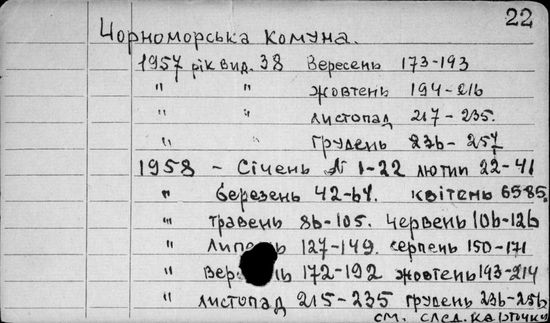 22
Чорноморська комуна.
1957 рік вид. 38 Вересень 173-193
" " жовтень 194-216
" " листопад 217-235.
" " грудень 236-257
1958 - Січень N 1-22 лютий 22-41
" березень 42-64. квітень 65-85.
" травень 86-105. червень 106-126
" 127-149. серпень 150-171
" 172-192 жовтень 193-214
" листопад 215-235 грудень 236-256
см. след. карточку